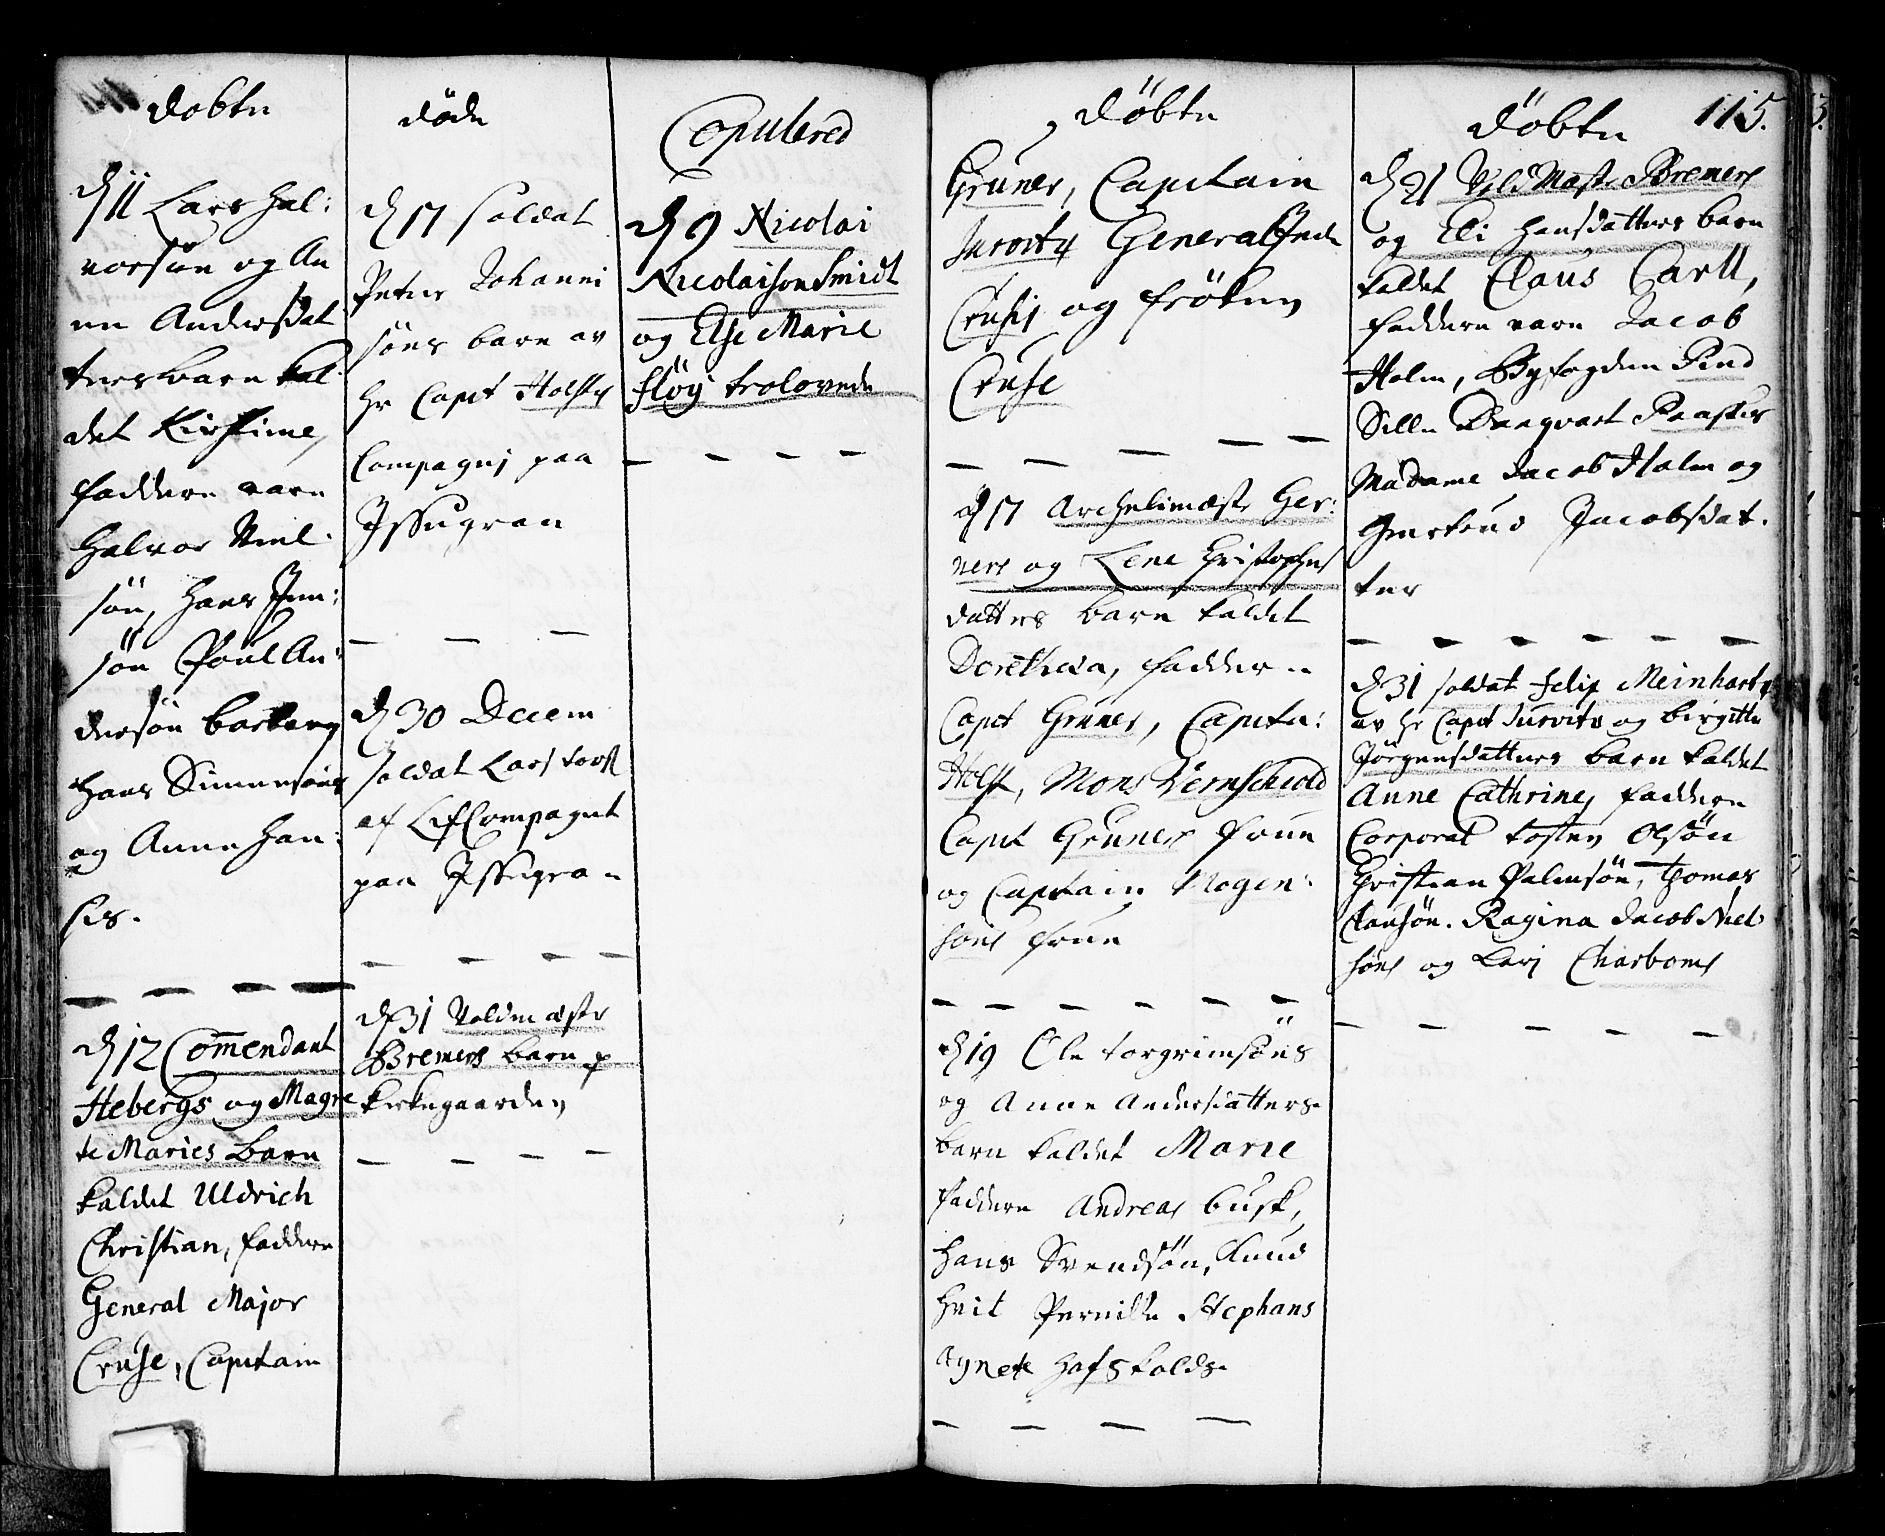 Døbte
d 11 Lars Hal:
vorsøn og An
ne Andersdat
ters barn kal
det Kirstine,
faddere vare
Halvor Niel
søn, Hans Jen:
søn Poul An:
dersøn
Hans Simensøns
og Anne Han:
ses.
d 12 Comendant
Hebergs og Magre
te Maries barn
kaldet Uldrich
Christian, faddere
General Major
Cruse, Capitain
døde
d 17 soldat
Peter Johanni
søns barn av
hr Capt Holstes
Compagnj paa
Issugran
d 30 Decem
soldat Lars
af LifCompagnit
paa Issugran
d 31 Voldmæster
Bremers barn p
kirkegaarden
Copulered
d 9 Nicolai
NicolaisonSmidt
og Else Marie
fløy trolovede
døbte
Gruner, Capitain
General
Crusis og frøken
Cruse
d 17 Archelimæster Ger:
ners og Lene Christophers
datters barn kaldet
Dorethea, faddere
Capt Gruner, Capita:
Holst, Mons Vernschiold
Capt Gruners frue
og Captain Mogen:
søns frue
d 19 Ole Torgrimsøns
og Anne Andersdatters
barn kaldet Marie
faddere Andreas Busk,
Hans Svendsøn, Knud
Hvit Pernille Stephans
Agnete Hafskolds
døbte
115.
d 21 Vold Mæster Bremers
og Eli Hansdatters barn
kaldet Claus Carll,
faddere vare Jacob
Holm, Byfogden Pind
Sille Danqvart Paaskes
Madame Jacob Holm og
Gertrud Jacobsdat.
ter
d 31 soldat Felix Meinharts
av hr Capt Jurvits og Birgitte
Jørgensdatters barn kaldet
Anne Cathrine, faddere
Corporal Tosten Olsøn
Christian Palmsøn, Thomas
Clausøn. Ragina Jacob Niel
søns og Lars Charboms